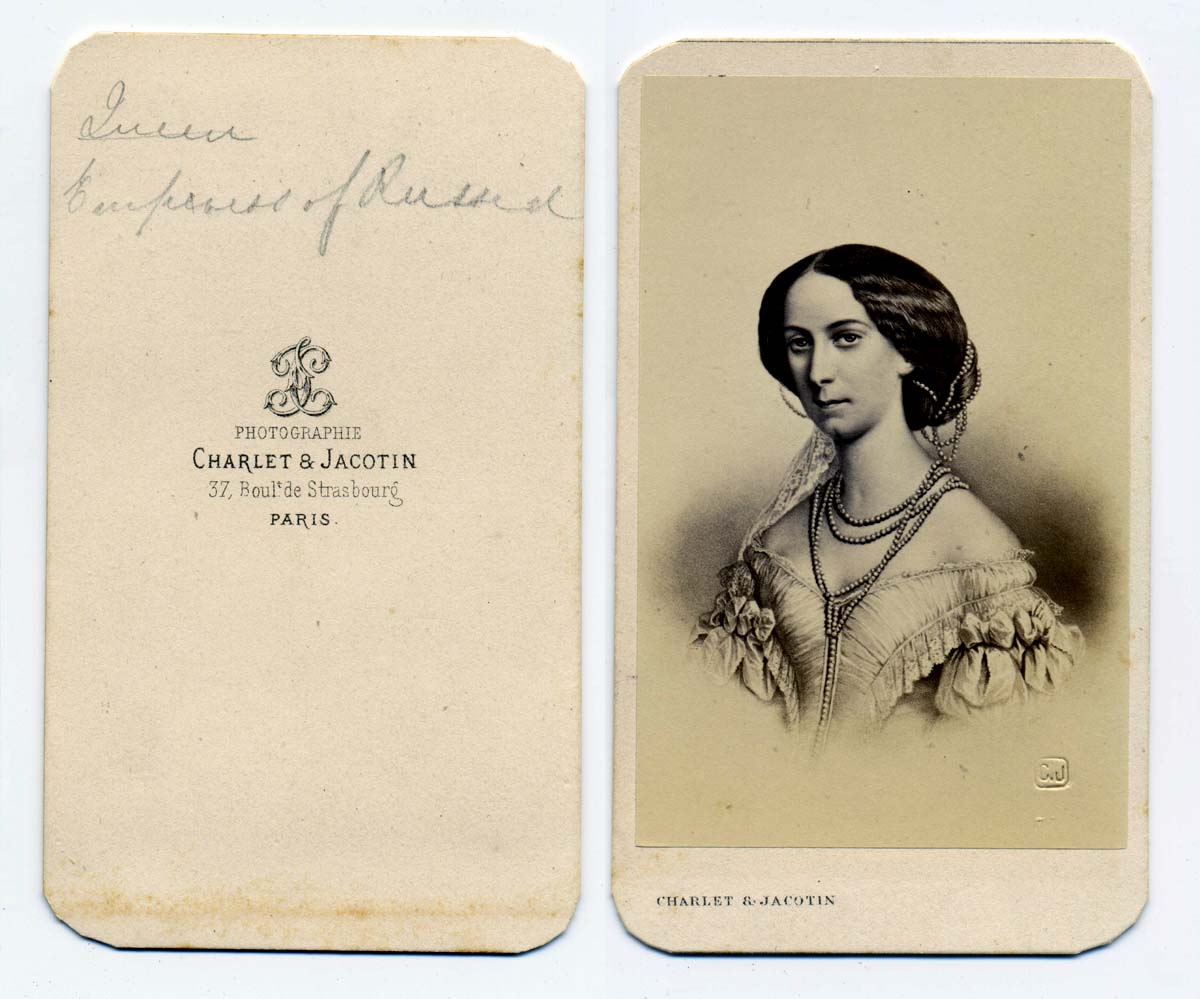 Queen
Empress of Russia
PHOTOGRAPHIE
CHARLET & JACOTIN
37, Boul.t de Strasbourg
PARIS.
C.J
CHARLET & JACOTIN